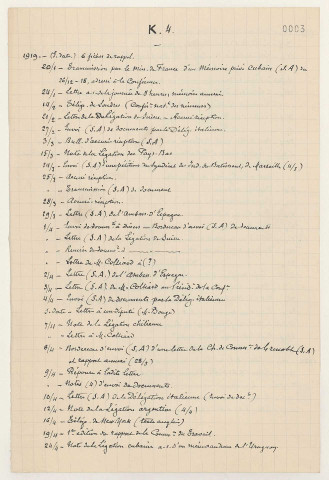 K. 4.
0003
1919. - (S. date) 6 fiches de rappel.
20/1 - Transmission par le Min. de France d'un Mémoire, pièce Cubain (S.A) du
16/12-18, adressé à la Conférence.
24/1 - Lettre a.s. de la journée de 8 heures, mémoire annexé.
19/2 - Télégr. de Londres (Conf. nat. des mineurs)
21/2 - Lettre de la Délégation de Suisse - Accusé réception.
27/2 - Envoi (S.A) de documents par la Délég. italienne.
3/3 - Bull. d'accusé réception (S.A)
15/3 - Note de la Légation des Pays-Bas
24/3 - Envoi (S.A) pétition du Syndicat des Ind. du Bâtiment, de Marseille
25/3 - Accusé réception.
" - Transmission (S.A) de document
28/3 - Accusé réception.
29/3 - Lettre (S.A) de l'Ambass. d'Espagne.
1/4 - Envoi de docum. à divers - Bordereau d'envoi (S.A) de documents
" - Lettre (S.A) de la Légation de Suisse
" - Remise de docum. d°
" - Lettre de M. Colliard à (?)
2/4 - Lettre (S.A) de l'Ambass. d'Espagne.
3/4 - Lettre (S.A) de M. Colliard au Présid. de la Conf.
4/4 - Envoi (S.A) de documents par la Délég. italienne
S. date - Lettre à un député
7/4 - Note de la Légation chilienne
" - Lettre à M. Colliard
8/4 - Bordereau d'envoi (S.A) d'une lettre de la Ch. de Comm. de Grenoble (S.A)
et rapport annexé (28/3)
9/4 - Réponse à ladite lettre
" - Notes (2) d'envoi de documents.
10/4 - Lettre (S.A) de la Délégation italienne (envoi de doc.)
12/4 - Note de la Légation argentine
16/4 - Télégr. de New-York (texte anglais)
19/4 - 1re édition du rapport de la Comm. du Travail.
24/4 - Note de la Légation cubaine a.s. d'un mémorandum de l'Uruguay